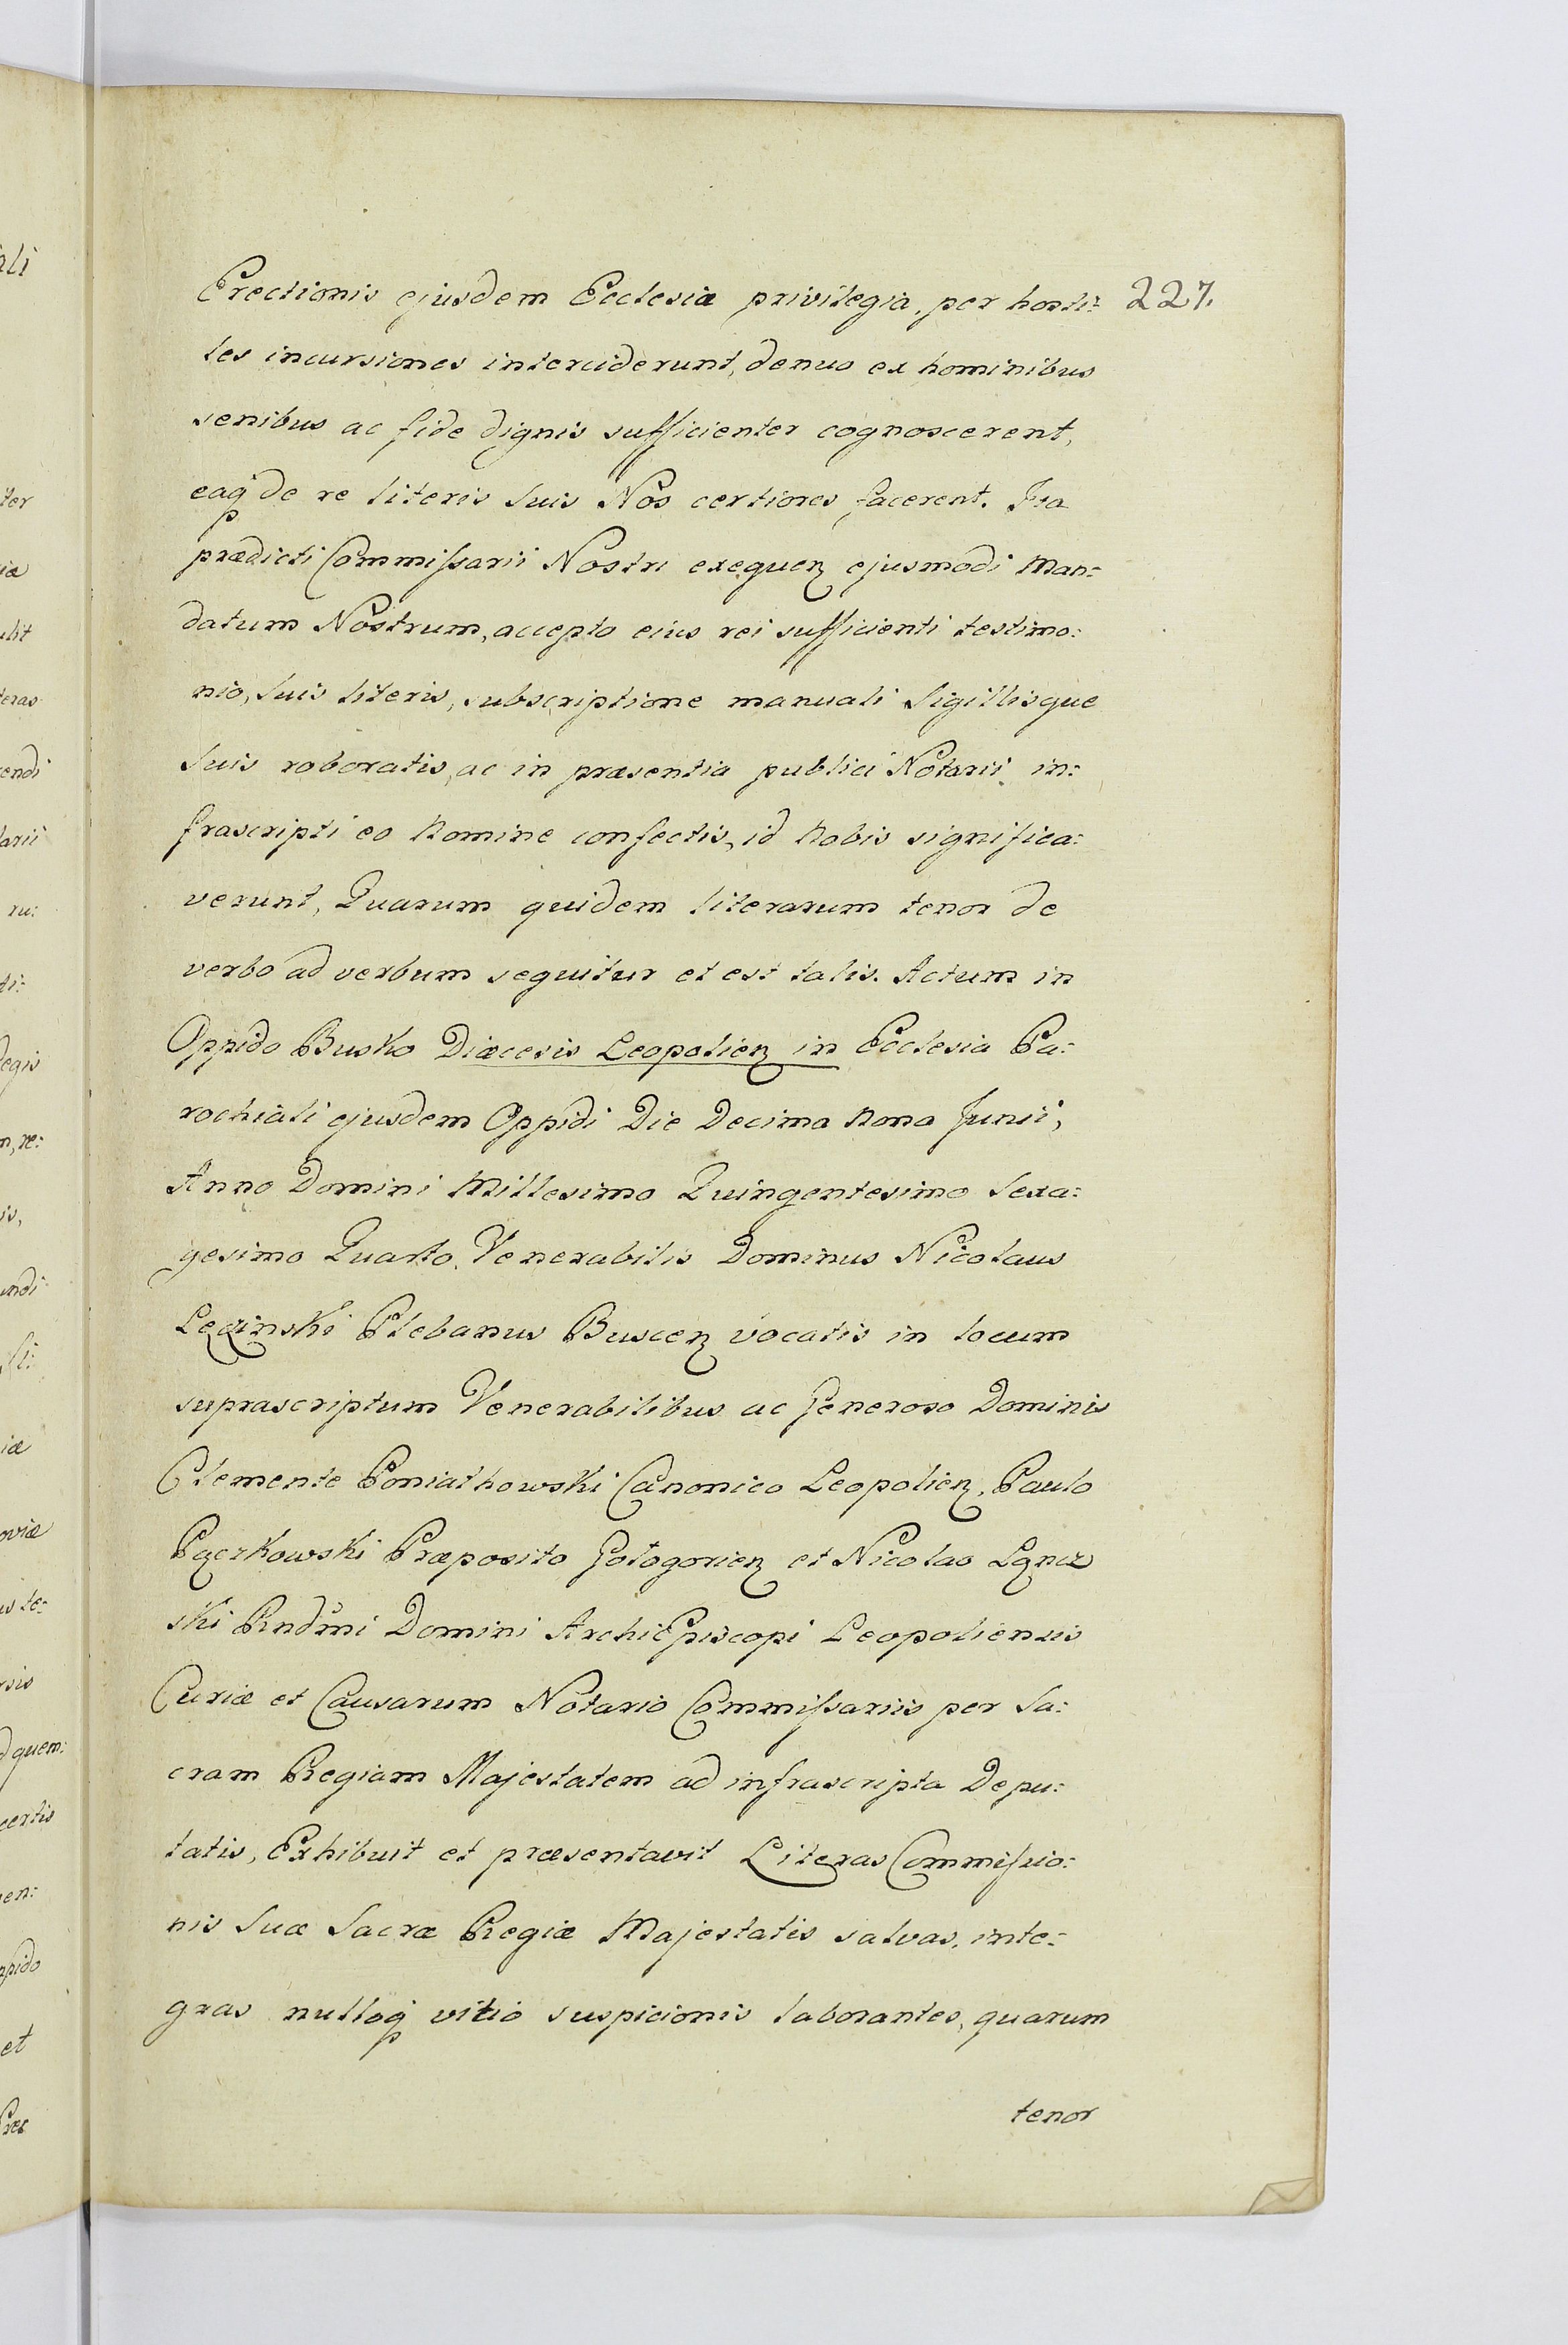 Erectionis ejusdem Ecclesiæ privilegia, per hosti: 227.
les incursiones interciderunt, denuo ex hominibus
senibus ac fide dignis sufficienter cognoscerent,
eaq de re literis suis Nos certiores facerent. Ita
prædicti Commissarii Nostri exequen ejusmodi Man:
datum Nostrum, accepto eius rei sufficienti testimo:
nio, suis literis, subscriptione manuali Sigillisque
suis roboratis, ac in præsentia publici Notarii in:
frascripti eo Nomine confectis, id Nobis significa:
verunt, Quarum quidem literarum tenor de
verbo ad verbum sequitur et est talis. Actum in
Oppido Busko Diœcesis Leopolien in Ecclesia Pa:
rochiali ejusdem Oppidi Die Decima Nona Junii,
Anno Domini Millesimo Quingentesimo Sexa:
gesimo Quarto. Venerabilis Dominus Nicolaus
Plebanus Buscen vocatis in locum
suprascriptum Venerabilibus ac Generoso Dominis
Clemente Poniathowski Canonico Leopolien, Paulo
Pączkowski Præposito Gologorien et Nicolao
ski Rndmi Domini ArchiEpiscopi Leopoliensis
Curiæ et Causarum Notario Commissariis per Sa:
cram Regiam Majestatem ad infrascripta Depu:
tatis, Exhibuit et præsentavit Literas Commissio:
nis Suæ Sacræ Regiæ Majestatis salvas, inte:
gras nulloq vitio suspicionis laborantes, quarum
tenor